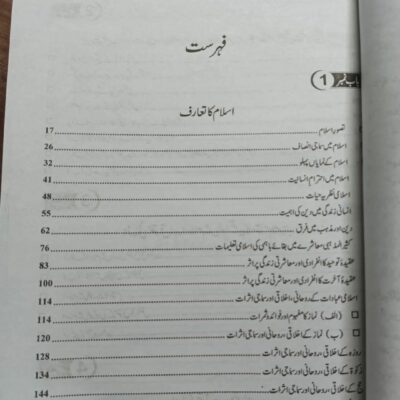 فہرست
باب نمبر 1
اسلام کا تعارف
تصور اسلام 17
اسلام میں سماجی انصاف 26
اسلام کے نمایاں پہلو 32
اسلام میں احترام انسانیت 41
اسلامی نظریہ حیات 48
انسانی زندگی میں دین کی اہمیت 55
دین اور مذہب میں فرق 62
کثیر المذہبی معاشرے میں بقائے باہمی کی اسلامی تعلیمات 76
عقیدۂ توحید کا انفرادی اور معاشرتی زندگی پر اثر 83
عقیدۂ آخرت کا انفرادی اور معاشرتی زندگی پر اثر 100
اسلامی عبادات کے روحانی، اخلاقی اور سماجی اثرات 114
(الف) نماز کا مفہوم اور فوائد و ثمرات 114
(ب) نماز کے اخلاقی، روحانی اور سماجی اثرات 120
روزہ کے اخلاقی، روحانی اور سماجی اثرات 128
زکوٰۃ کے اخلاقی، روحانی اور سماجی اثرات 134
حج کے اخلاقی، روحانی اور سماجی اثرات 144